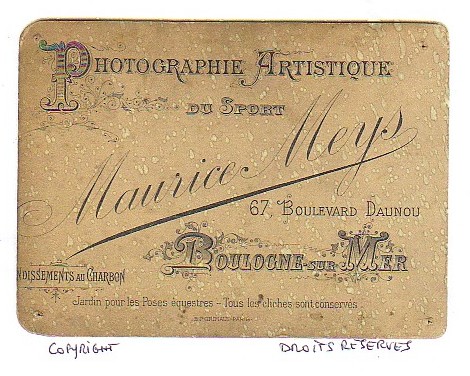 PHOTOGRAPHIE ARTISTIQUE
DU SPORT
Maurice Meys
67, BOULEVARD DAUNOU
BOULOGNE-SUR-MER
NDISSEMENTS AU CHARBON
Jardin pour les Poses équestres - Tous les clichés sont conservés
COPYRIGHT DROITS RESERVES